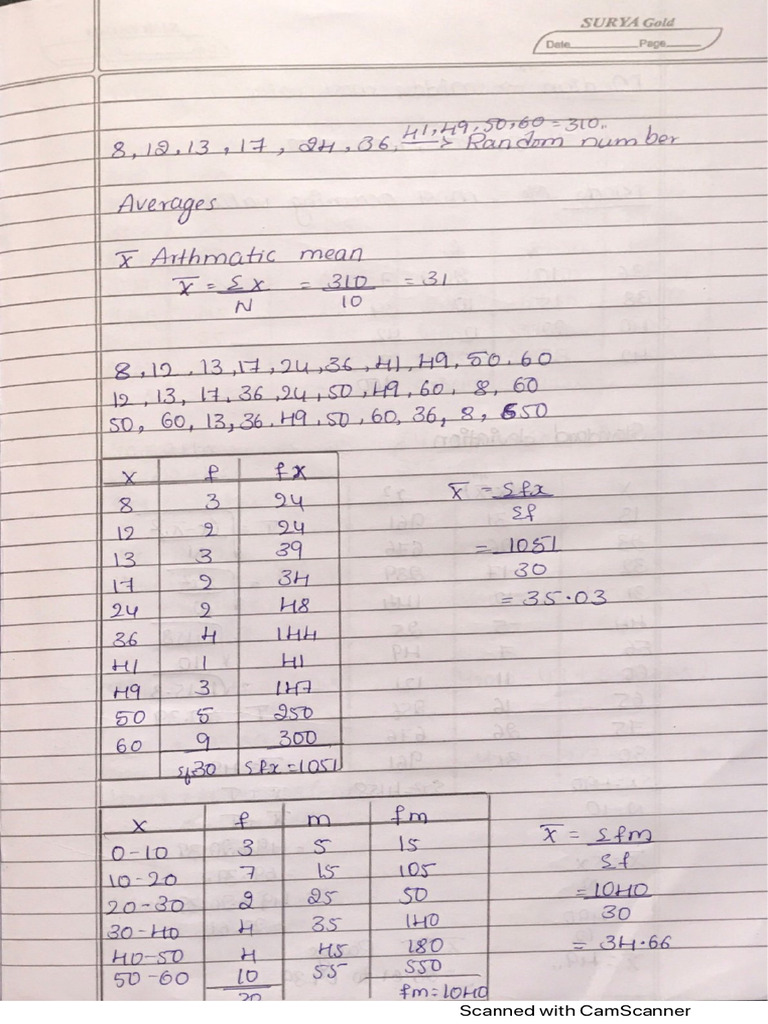 SURYA Gold
Date Page
41, 49, 50, 60 = 310..
8, 12, 13, 17, 24, 36, → Random number
Averages
x̄ Arthmatic mean
x̄ = Σx / N = 310 / 10 = 31
8, 12, 13, 17, 24, 36, 41, 49, 50, 60
12, 13, 17, 36, 24, 50, 49, 60, 8, 60
50, 60, 13, 36, 49, 50, 60, 36, 8, 50
x f fx
8 3 24
12 2 24
13 3 39
17 2 34
24 2 48
36 4 144
41 1 41
49 3 147
50 5 250
60 9 300
Σf30 Σfx = 1051
x̄ = Σfx / Σf
= 1051 / 30
= 35.03
x f m fm
0-10 3 5 15
10-20 7 15 105
20-30 2 25 50
30-40 4 35 140
40-50 4 45 180
50-60 10 55 550
30 fm = 1040
x̄ = Σfm / Σf
= 1040 / 30
= 34.66
Scanned with CamScanner